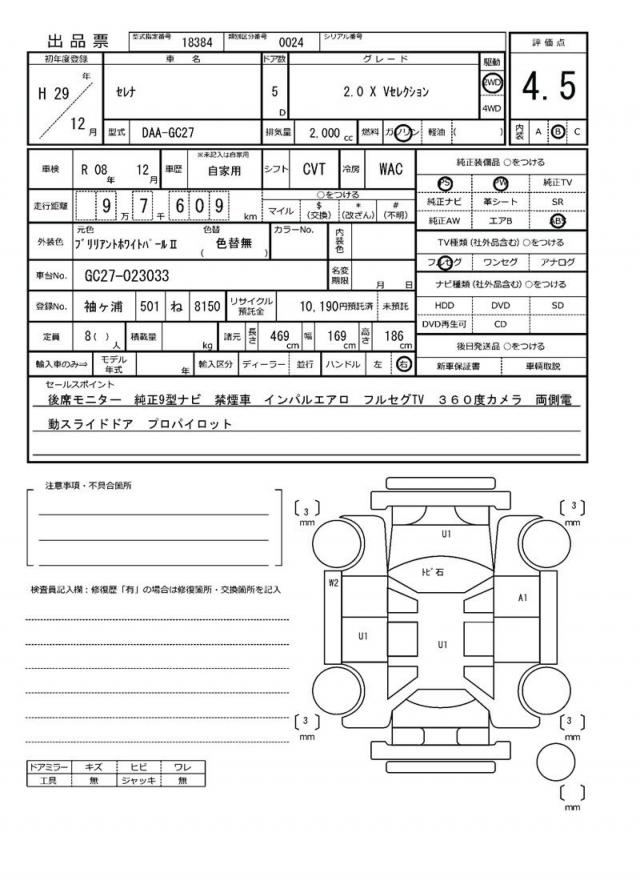 出品票 型式指定番号 18384 類別区分番号 0024 シリアル番号
初年度登録 車名 ドア数 グレード 駆動 評価点
H 29 年 12 月 セレナ 5 D 2.0 X Vセレクション 2WD 4WD 4.5
型式 DAA-GC27 排気量 2,000 cc 燃料 ガソリン 軽油 ( ) 内装 A B C
車検 R 08 年 12 月 車歴 ※未記入は自家用 自家用 シフト CVT 冷房 WAC
走行距離 9 万 7 千 6 0 9 km ○をつける マイル $ (交換) * (改ざん) # (不明)
外装色 元色 ブリリアントホワイトパールⅡ 色替 ( 色替無 ) カラーNo. 内装色
車台No. GC27-023033 名変期限 月 日
登録No. 袖ヶ浦 501 ね 8150 リサイクル預託金 10,190円預託済 未預託
定員 8( ) 人 積載量 kg 諸元 長さ 469 cm 幅 169 cm 高さ 186 cm
輸入車のみ⇒ モデル年式 年 輸入区分 ディーラー 並行 ハンドル 左 右
純正装備品 ○をつける
PS PW 純正TV
純正ナビ 革シート SR
純正AW エアB ABS
TV種類 (社外品含む) ○をつける
フルセグ ワンセグ アナログ
ナビ種類 (社外品含む) ○をつける
HDD DVD SD
DVD再生可 CD
後日発送品 ○をつける
新車保証書 車輌取説
セールスポイント
後席モニター 純正9型ナビ 禁煙車 インパルエアロ フルセグTV 360度カメラ 両側電
動スライドドア プロパイロット
注意事項・不具合箇所
検査員記入欄:修復歴「有」の場合は修復箇所・交換箇所を記入
ドアミラー キズ ヒビ ワレ
工具 無 ジャッキ 無
[ 3 ] mm
[ 3 ] mm
U1
トビ石
W2
A1
U1
U1
[ 3 ] mm
[ 3 ] mm
[ ] mm